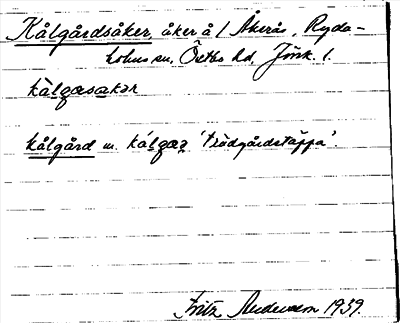 Kålgårdsåker, åker å 1 Åkerås, Ryda-
holms sn, Östbo hd, Jönk. l.
kålgård m. 'trädgårdstäppa'.
Fritz Andersson 1939.